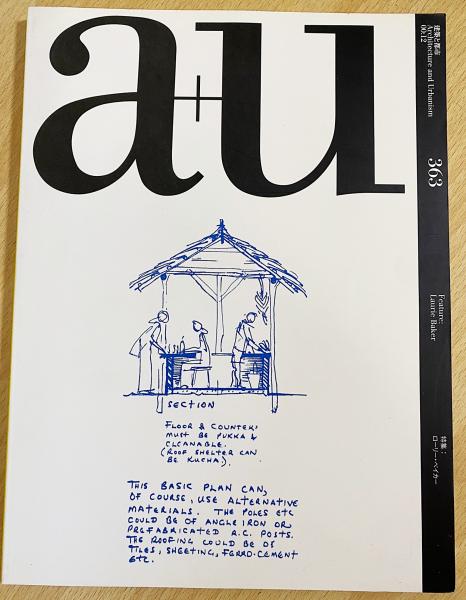 a+u
建築と都市
Architecture and Urbanism
00:12
363
Feature:
Laurie Baker
特集：
ローリー・ベイカー
SECTION
FLOOR & COUNTER,
MUST BE PUKKA &
CLEANABLE.
(ROOF SHELTER CAN
BE KUCHA).
THIS BASIC PLAN CAN,
OF COURSE, USE ALTERNATIVE
MATERIALS. THE POLES ETC
COULD BE OF ANGLE IRON OR
PREFABRICATED R.C. POSTS.
THE ROOFING COULD BE OF
TILES, SHEETING, FERRO-CEMENT
ETC.